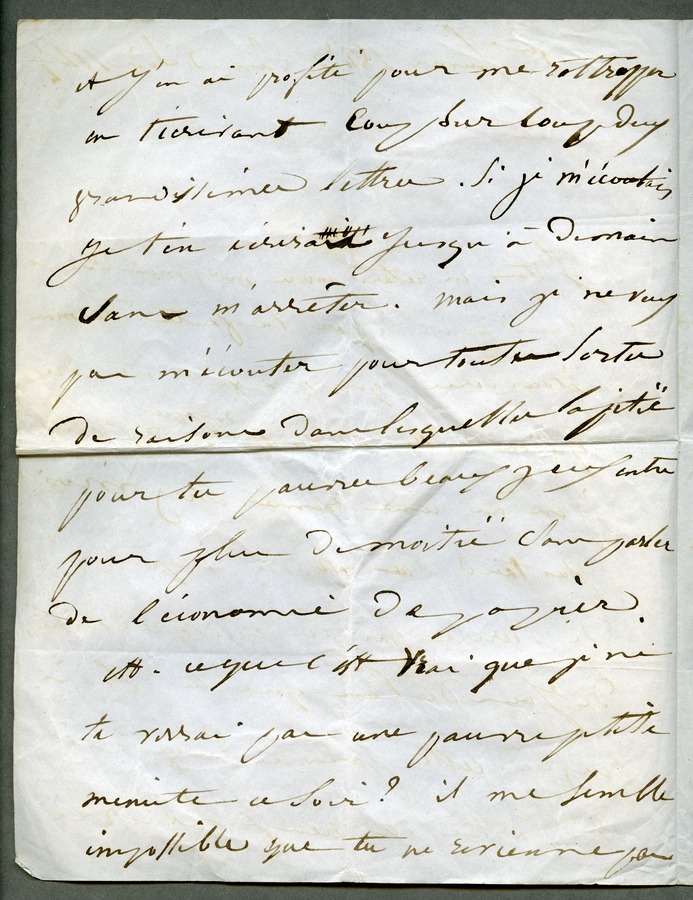 et j'en ai profité pour me rattrapper
en t'écrivant coup sur coup deux
grandissimes lettres. Si je m'écoutais
je t'en écrirais jusqu'à demain
sans m'arrêter. mais je ne veux
pas m'écouter pour toutes sortes
de raisons dans lesquelles la pitié
pour tes pauvres beaux yeux entre
pour plus de moitié sans parler
de l'économie de papier
Est-ce que c'est vrai que je ne
te verrai pas une pauvre petite
minute ce soir? il me semble
impossible que tu ne reviennes pas